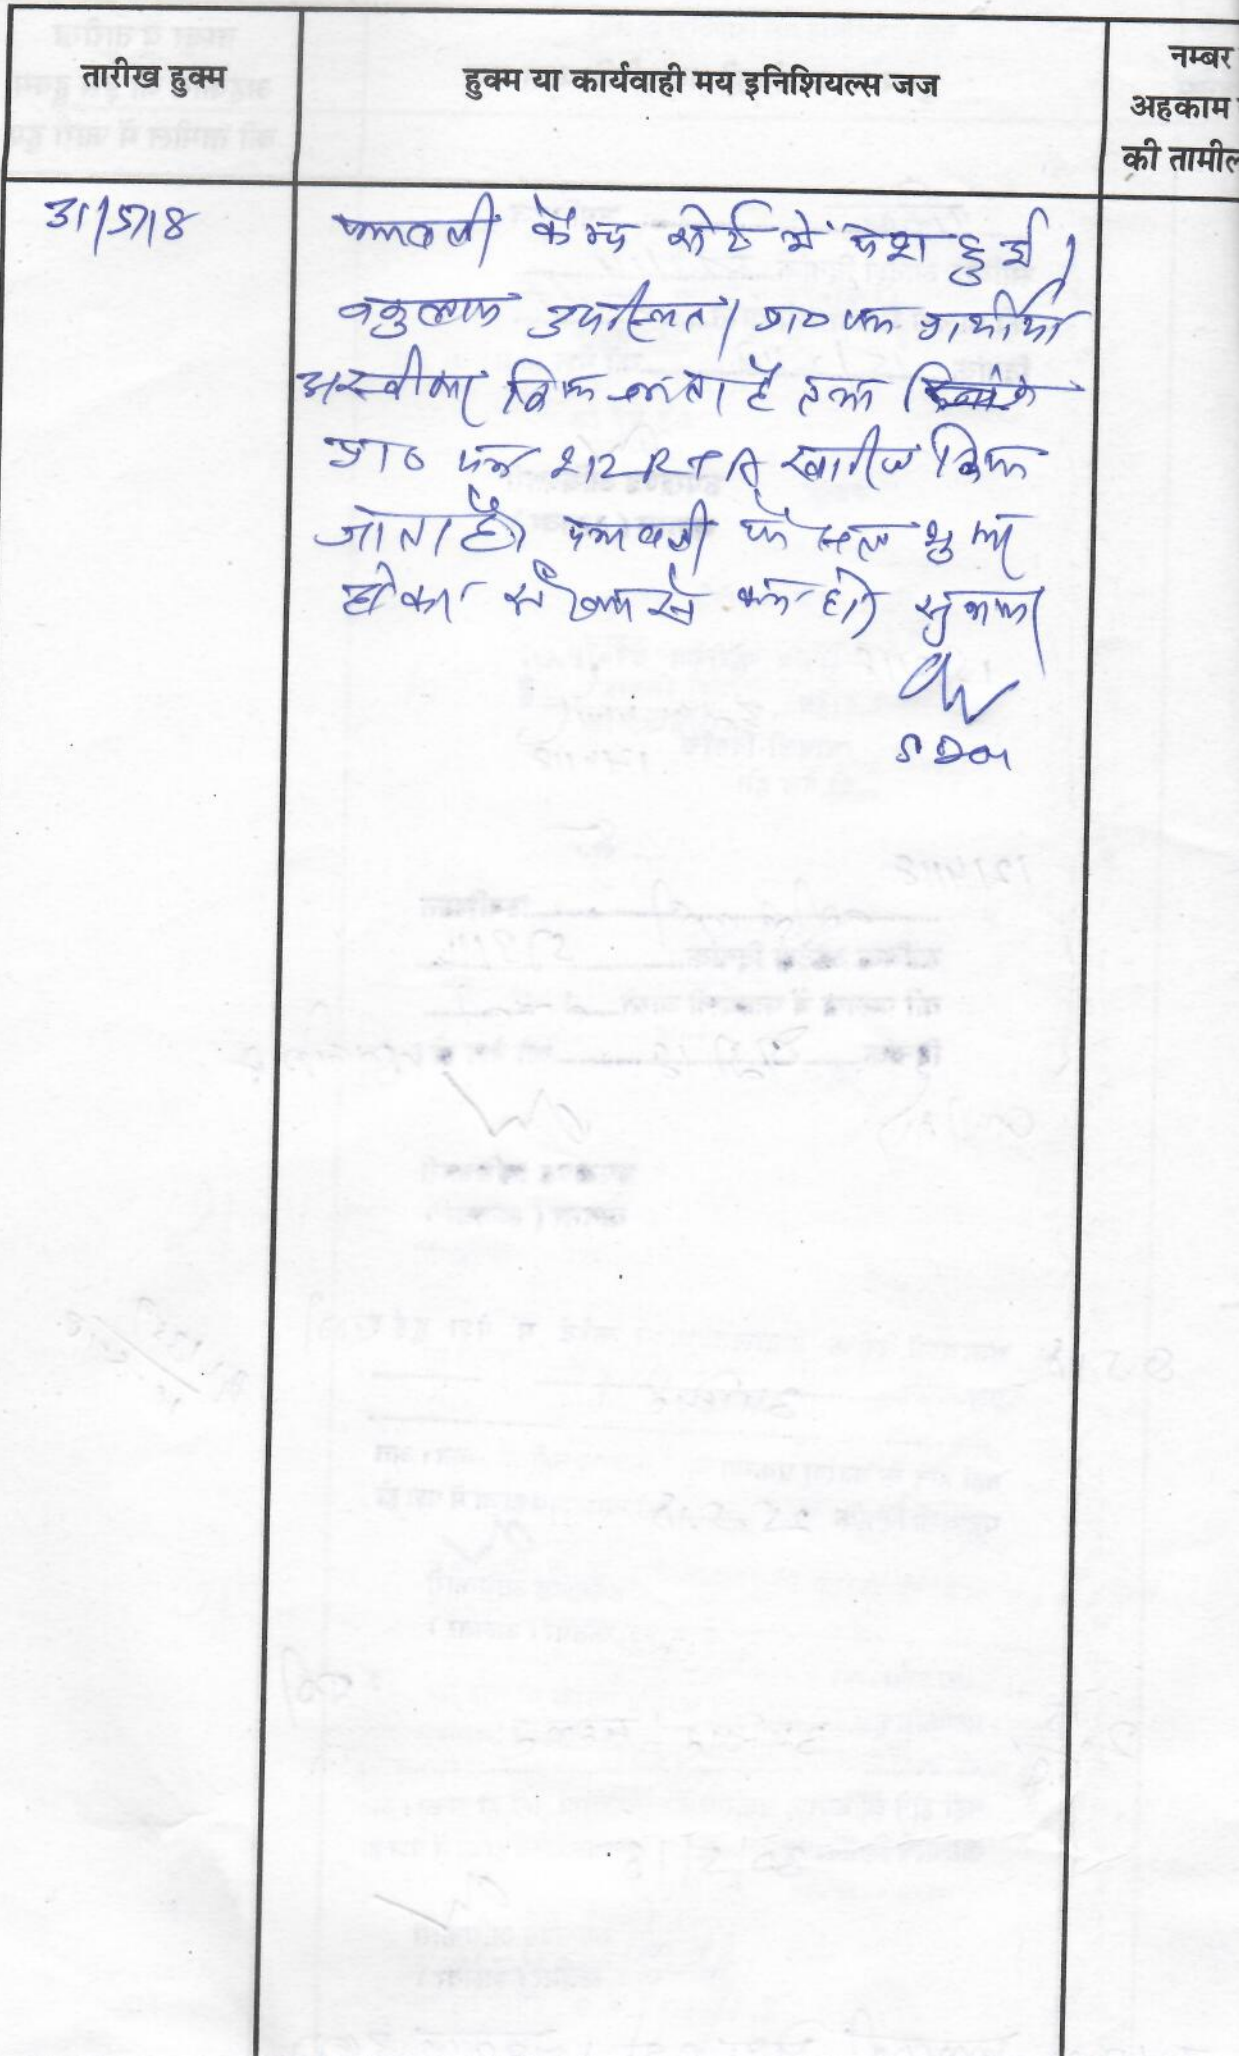 तारीख हुक्म
हुक्म या कार्यवाही मय इनिशियल्स जज
नम्बर
अहकाम
की तामील
31/5/18
पत्रावली कैम्प कोर्ट में पेश हुई।
वकुलाय उपस्थित। प्रा० पत्र प्रार्थीया
अस्वीकार किया जाता है तथा
प्रा० पत्र 212 RTA खारीज किया
जाता है। पत्रावली फैसल शुमार
होकर नम्बर से कम हो। सुनाया।
SDO